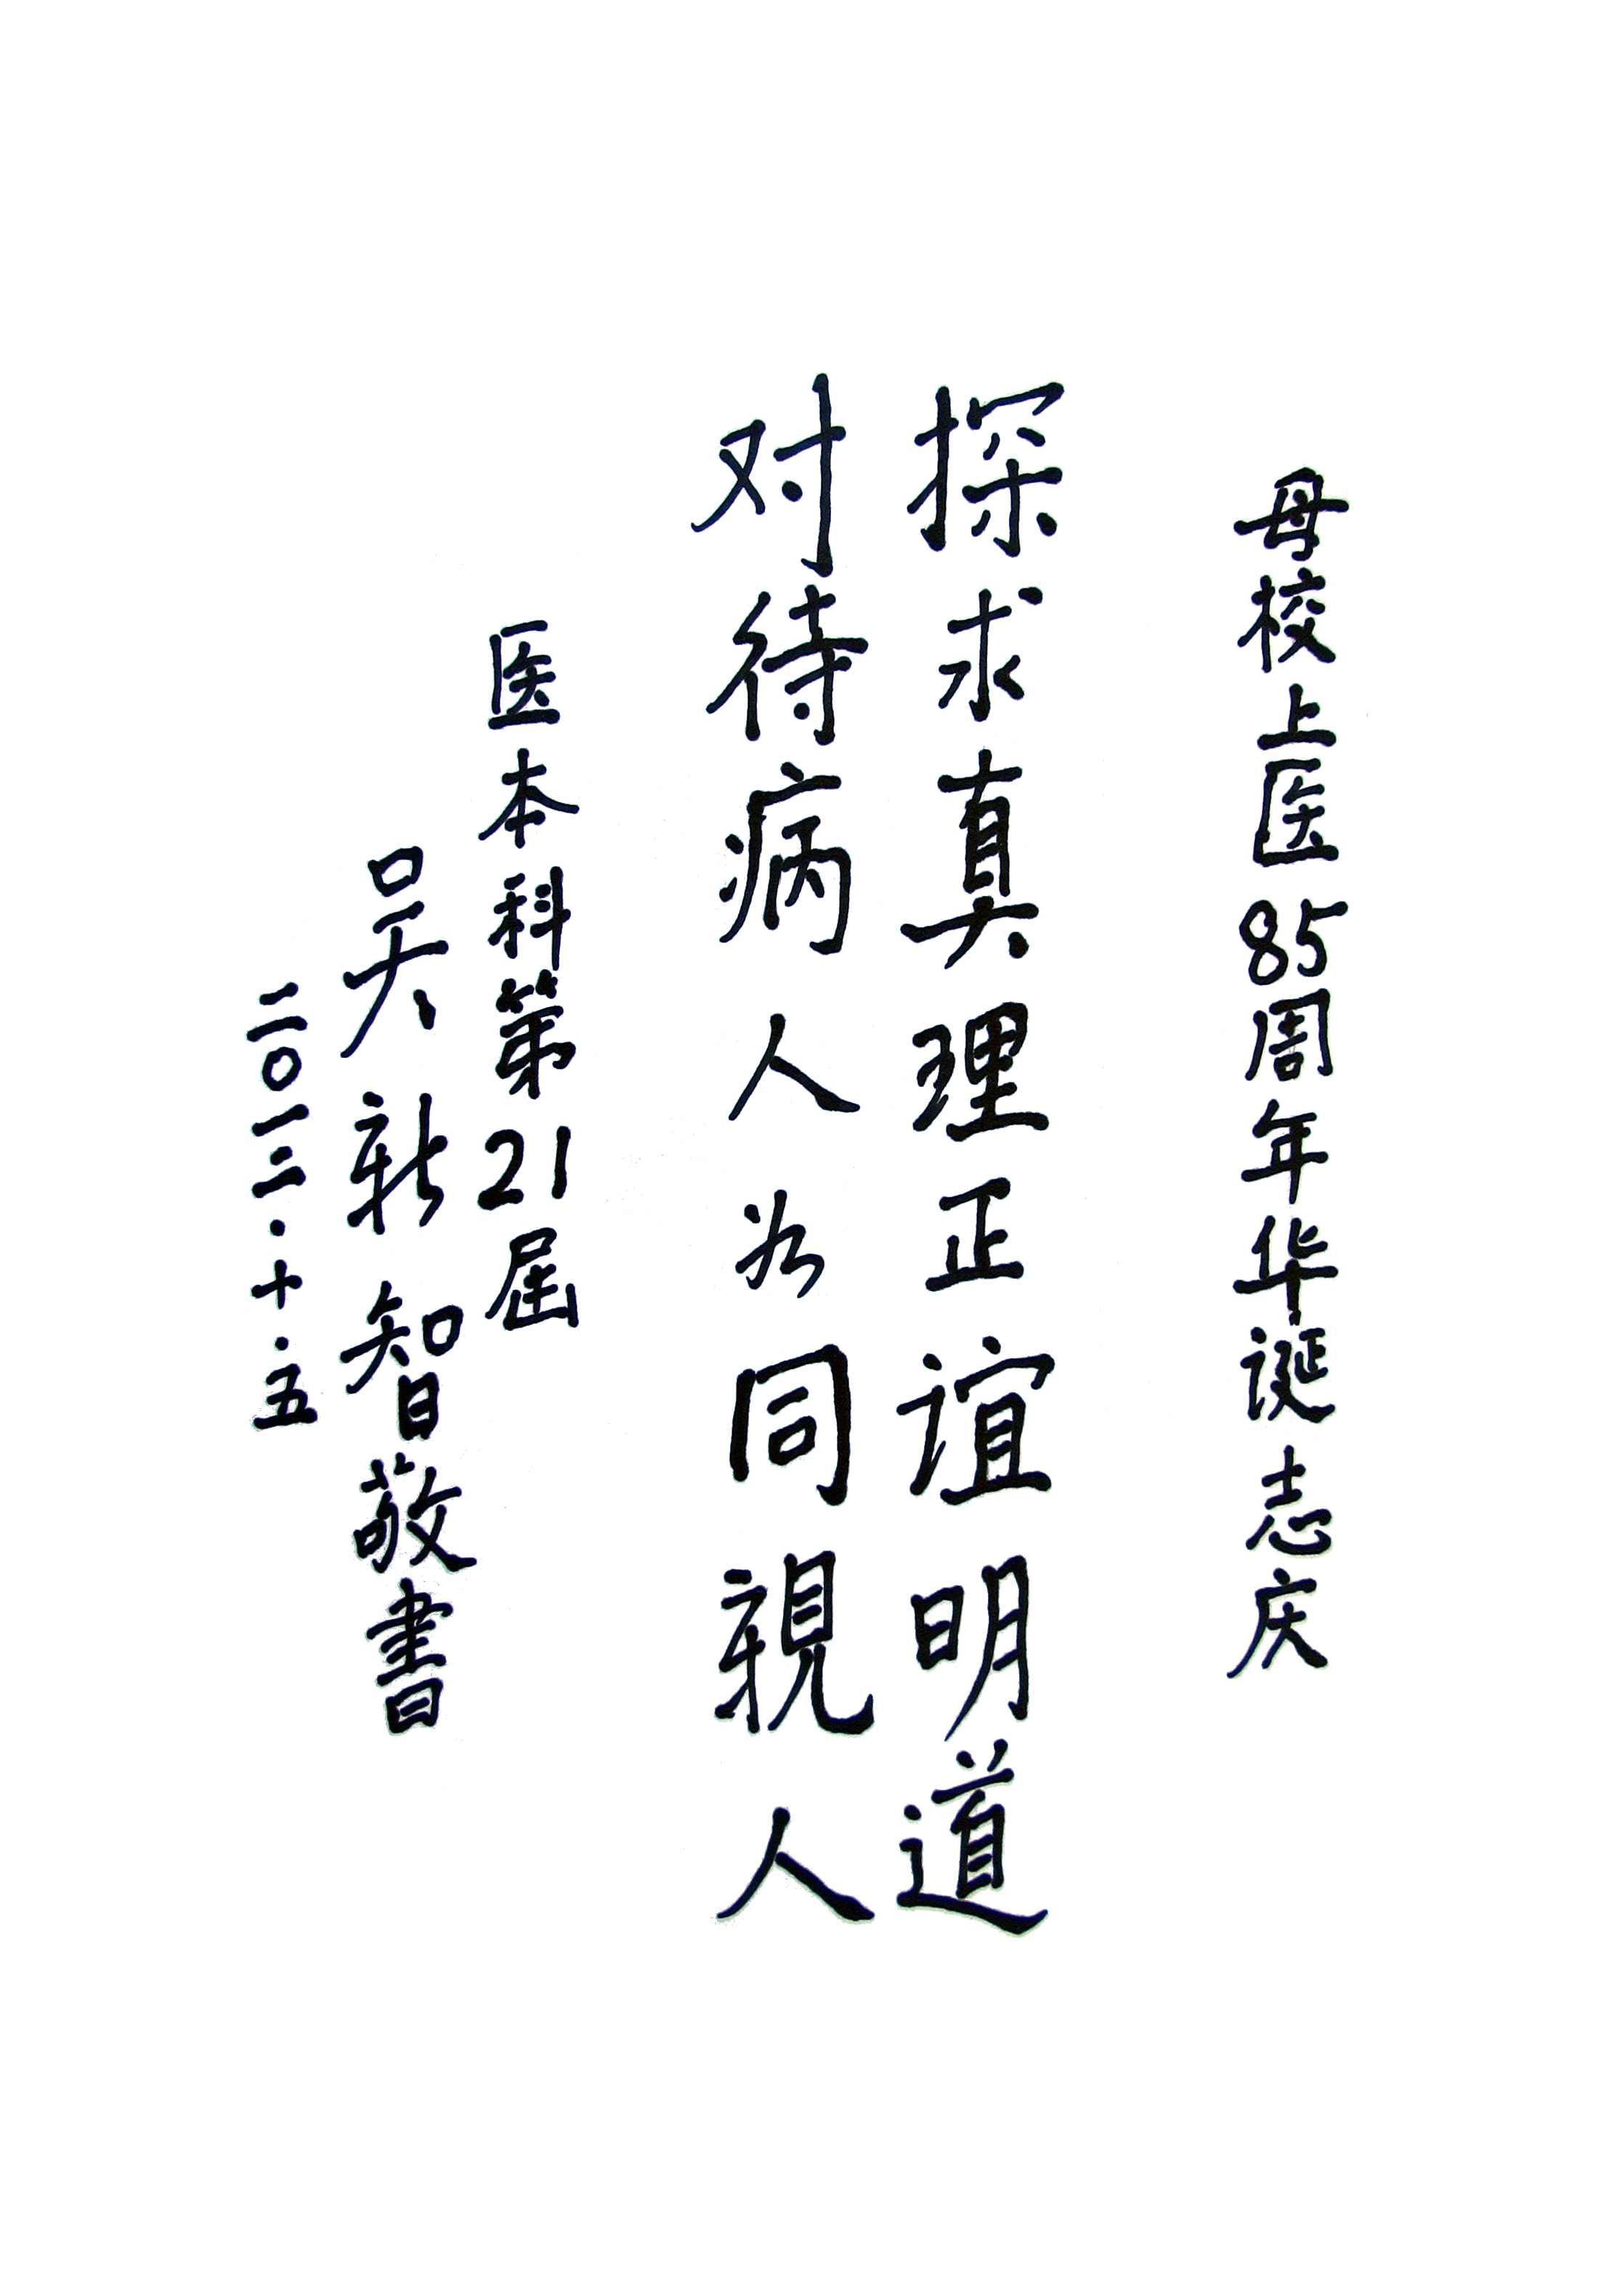 母校上医85周年华诞志庆
探求真理正谊明道
对待病人为同親人
医本科第21届
吴新智敬書
二〇一二·十·五